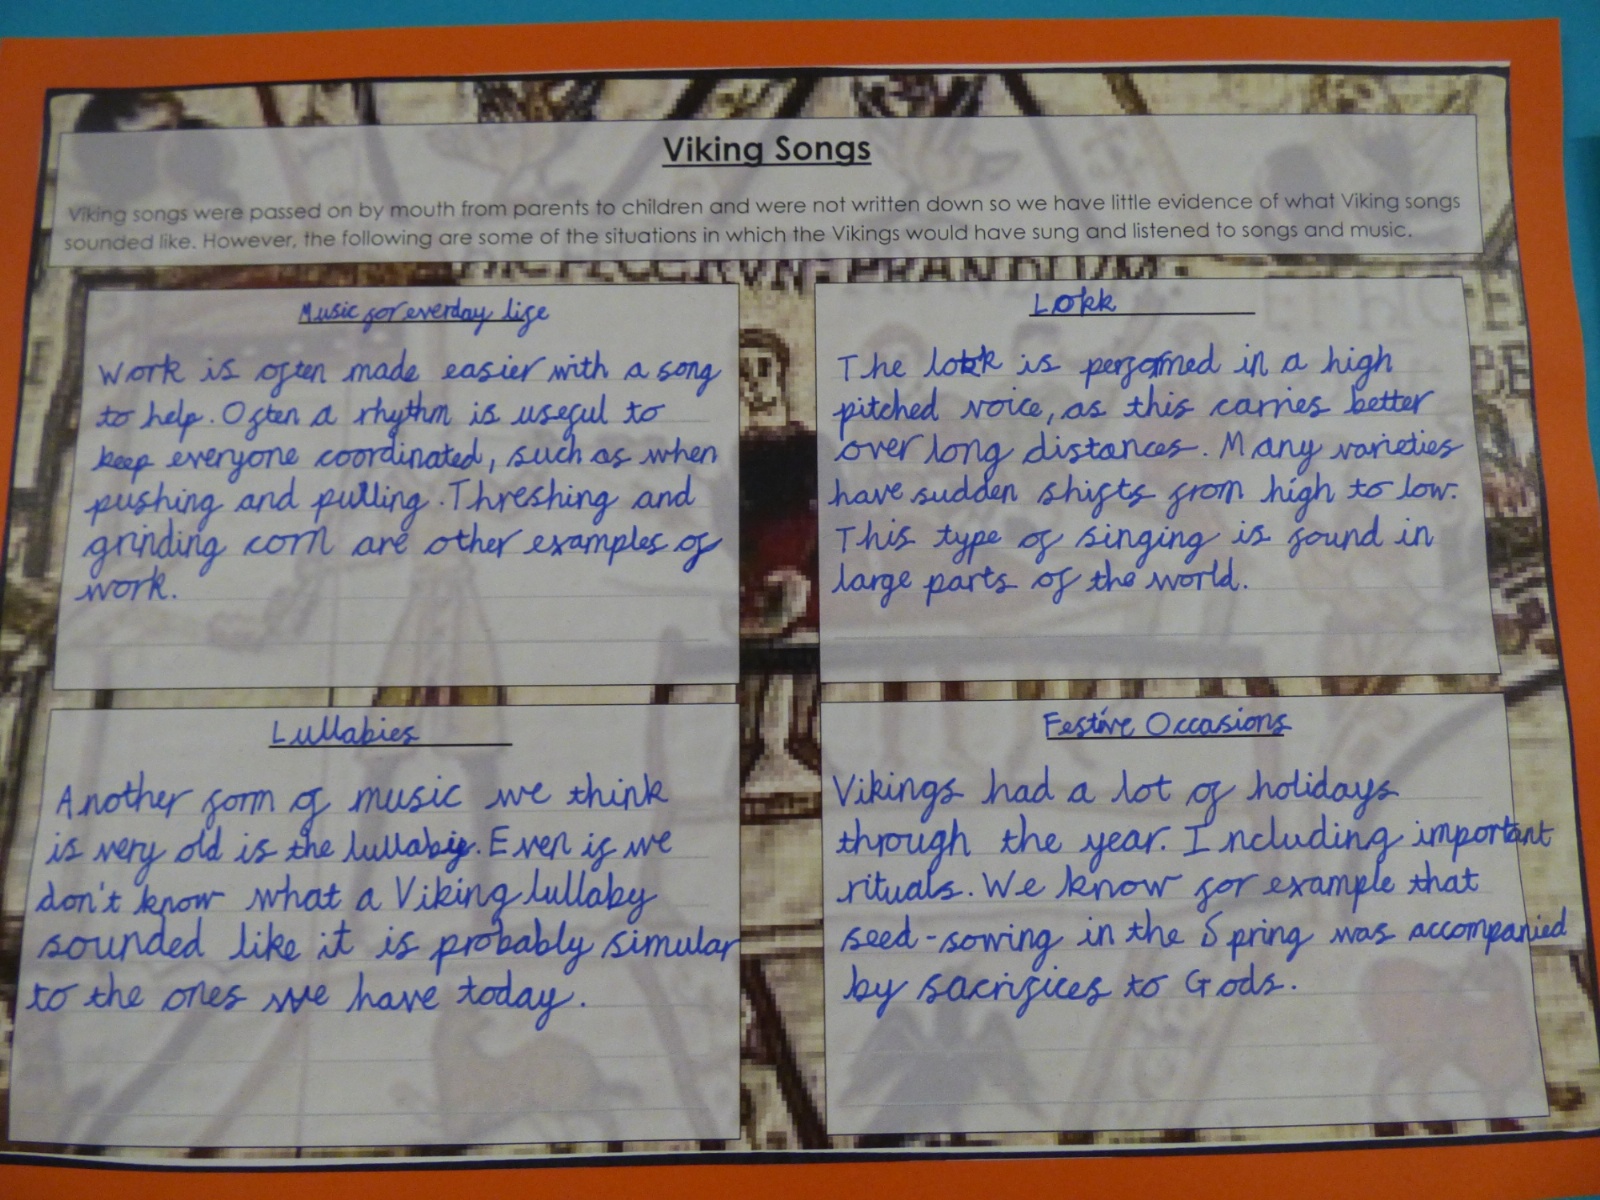 Viking Songs
Viking songs were passed on by mouth from parents to children and were not written down so we have little evidence of what Viking songs
sounded like. However, the following are some of the situations in which the Vikings would have sung and listened to songs and music.
Music for everday life
Work is often made easier with a song
to help. Often a rhythm is useful to
keep everyone coordinated, such as when
pushing and pulling. Threshing and
grinding corn are other examples of
work.
Lokk
The lokk is performed in a high
pitched voice, as this carries better
over long distances. Many varieties
have sudden shifts from high to low.
This type of singing is found in
large parts of the world.
Lullabies
Another form of music we think
is very old is the lullaby. Even if we
don't know what a Viking lullaby
sounded like it is probably simular
to the ones we have today.
Festive Occasions
Vikings had a lot of holidays
through the year. Including important
rituals. We know for example that
seed-sowing in the Spring was accompanied
by sacrifices to Gods.